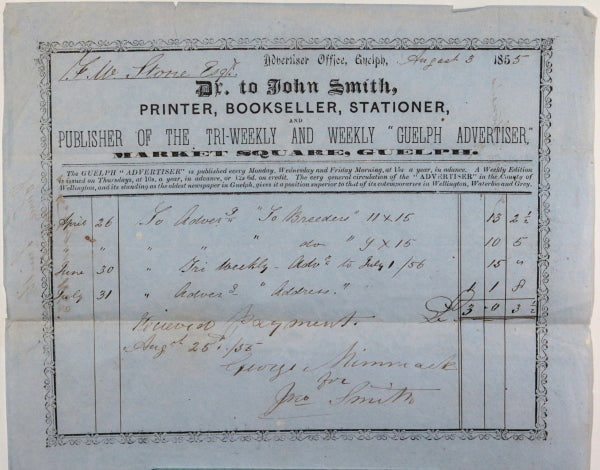 Advertiser Office, Guelph, August 3 1855
F. W. Stone Esqr.
Dr. to John Smith,
PRINTER, BOOKSELLER, STATIONER,
AND
PUBLISHER OF THE TRI-WEEKLY AND WEEKLY "GUELPH ADVERTISER,"
MARKET SQUARE, GUELPH.
The GUELPH "ADVERTISER" is published every Monday, Wednesday and Friday Morning, at a year, in advance. A Weekly Edition
is issued on Thursdays, at 10s. a year, in advance, or 12s 6d. on credit. The very general circulation of the "ADVERTISER" in the County of
Wellington, and its standing as the oldest newspaper in Guelph, gives it a position superior to that of its cotemporaries in Wellington, Waterloo and Grey.
April 26 To Adverg "To Breeders" 11 x 15 13 2½
" " " " do " 9 x 15 10 5
June 30 " Tri Weekly - Advr to July 1/56 15 "
July 31 " Adverg "Address." 1 1 8
£ 3 0 3½
Received Payment.
Augt 25th/55
George
for
Jno Smith